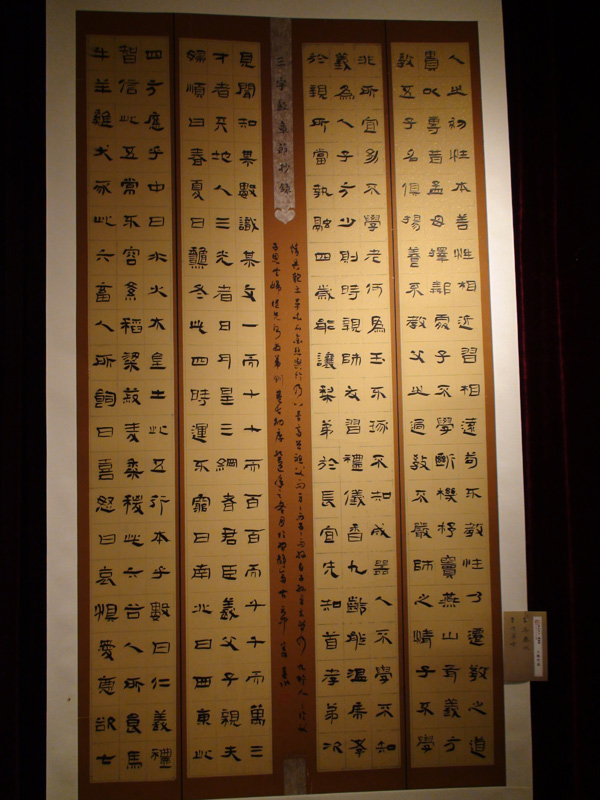 人之初性本善性相近習相遠苟不教性乃遷教之道
貴以專昔孟母擇鄰處子不學斷機杼竇燕山有義方
教五子名俱揚養不教父之過教不嚴師之惰子不學
非所宜幼不學老何為玉不琢不知成器人不學不知
義為人子方少則時親師友習禮儀香九齡能溫席孝
於親所當執融四歲能讓梨弟於長宜先知首孝弟次
三字經章節抄錄
情具匏土革木石金絲與竹乃八音高曾祖父而身身而子子而孫自子孫至玄曾乃九族人之倫父
子恩夫婦從兄則友弟則恭長幼序
見聞知某數識某文一而十十而百百而千千而萬三
才者天地人三光者日月星三綱者君臣義父子親夫
婦順曰春夏曰秋冬此四時運不窮曰南北曰西東此
四方應乎中曰水火木金土此五行本乎數曰仁義禮
智信此五常不容紊稻粱菽麥黍稷此六谷人所食馬
牛羊雞犬豕此六畜人所飼曰喜怒曰哀懼愛惡欲七